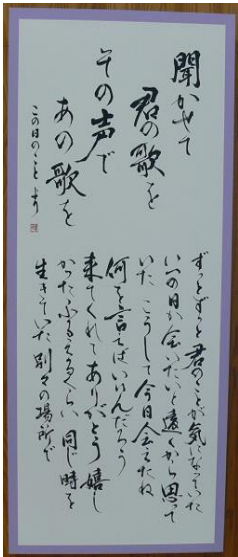 聞かせて
君の歌を
その声で
あの歌を
この日のこと より
ずっとずっと君のことが気になっていた
いつの日か会いたいと遠くから思って
いた こうして今日会えたね
何を言えばいいんだろう
来てくれてありがとう 嬉し
かった ふるえるくらい 同じ時を
生きていた 別々の場所で